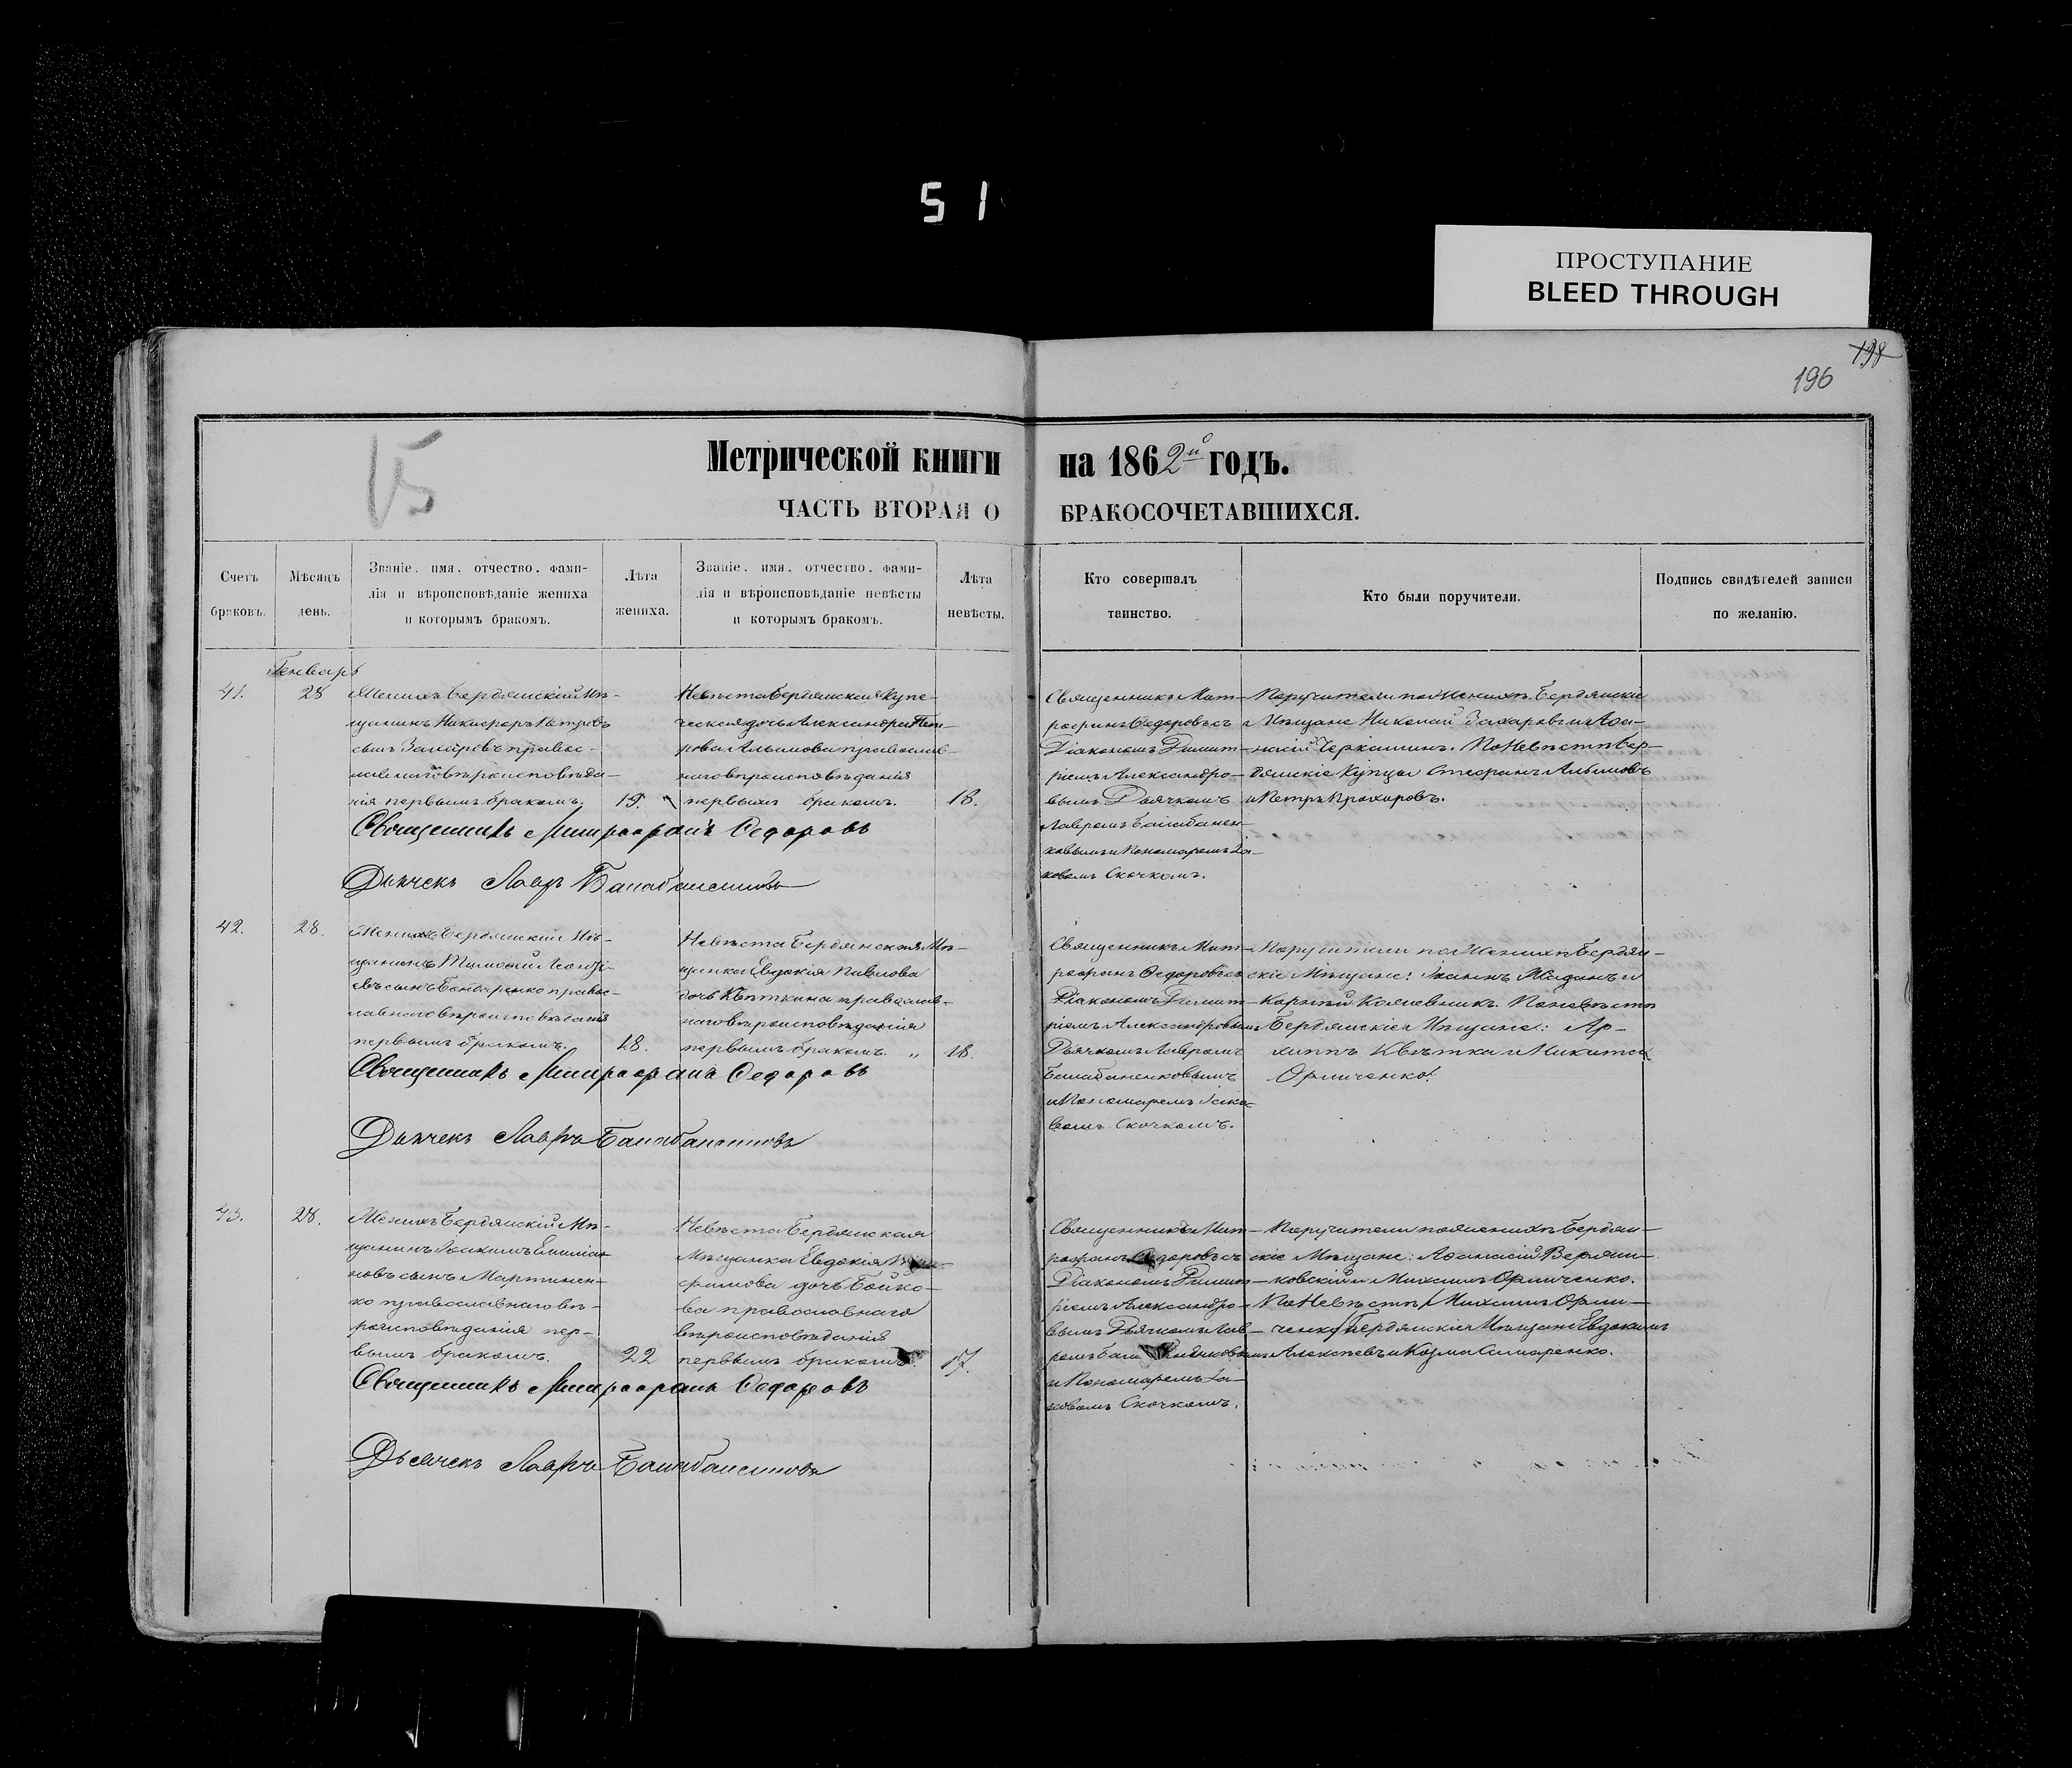 51
ПРОСТУПАНИЕ
BLEED THROUGH
198
196
15
Метрической книги на 1862й годъ.
ЧАСТЬ ВТОРАЯ О БРАКОСОЧЕТАВШИХСЯ.
Счетъ браковъ.
Мѣсяцъ день.
Званіе, имя, отчество, фами-
лія и вѣроисповѣданіе жениха
и которымъ бракомъ.
Лѣта жениха.
Званіе, имя, отчество, фами-
лія и вѣроисповѣданіе невѣсты
и которымъ бракомъ.
Лѣта невѣсты.
Кто совершалъ
таинство.
Кто были поручители.
Подпись свидѣтелей записи
по желанію.
Генварь
41.
28
Женихъ Бердянскій Мѣ-
щанинъ Никифоръ Петровъ
сынъ Захаровъ правос-
лавнаго вѣроисповѣда-
нія первымъ бракомъ.
19.
Невѣста Бердянская Купе-
ческая дочь Александра Пет-
рова Альбмова православ-
наго вѣроисповѣданія
первымъ бракомъ.
18.
Священникъ Мит-
рофанъ Федоровъ съ
Діакономъ Димит-
ріемъ Александро-
вымъ Дьячкомъ
Лавромъ Балабанен-
ковымъ и Пономаремъ Іа-
ковомъ Скочкомъ.
Поручители по Женихѣ Бердянскіе
Мѣщане Николай Захаровъ и Афа-
насій Черкашинъ. По Невѣстѣ Бер-
дянскіе Купцы Стефанъ Альбмовъ
и Петръ Прохоровъ.
Священникъ Митрофанъ Федоровъ
Дьячекъ Лавръ Балабаненковъ
42.
28.
Женихъ Бердянскій Мѣ-
щанинъ Тимофей Леонті-
евъ сынъ Бондаренко правос-
лавнаго вѣроисповѣданія
первымъ бракомъ.
18.
Невѣста Бердянская Мѣ-
щанка Евдокія Павлова
дочь Квѣткина православ-
наго вѣроисповѣданія
первымъ бракомъ. "
18.
Священникъ Мит-
рофанъ Федоровъ съ
Діакономъ Димит-
ріемъ Александровымъ
Дьячкомъ Лавромъ
Балабаненковымъ
и Пономаремъ Іако-
вомъ Скочкомъ.
Поручители по Женихѣ Бердян-
скіе Мѣщане: Іоаннъ Жаданъ и
Корнѣй Колневникъ. По невѣстѣ
Бердянскіе Мѣщане: Ар-
хиппъ Квѣтка и Никита
Орличенко.
Священникъ Митрофанъ Федоровъ
Дьячекъ Лавръ Балабаненковъ
43.
28.
Женихъ Бердянскій Мѣ-
щанинъ Іоакимъ Емиліа-
новъ сынъ Мартинен-
ко православнаго вѣ-
роисповѣданія пер-
вымъ бракомъ.
22
Невѣста Бердянская
Мѣщанка Евдокія
фимова дочь Бойко-
ва православнаго
вѣроисповѣданія
первымъ бракомъ.
17.
Священникъ Мит-
рофанъ Федоровъ съ
Діакономъ Димит-
ріемъ Александро-
вымъ Дьячкомъ Лав-
ромъ Балабаненковымъ
и Пономаремъ Іа-
ковомъ Скочкомъ.
Поручители по женихѣ Бердян-
скіе Мѣщане: Афанасій
ковскій и Михаилъ Орличенко.
По Невѣстѣ Михаилъ Орли-
ченко Бердянскіе Мѣщане Евдокимъ
Алексѣевъ и Козма Слюсаренко.
Священникъ Митрофанъ Федоровъ
Дьячекъ Лавръ Балабаненковъ